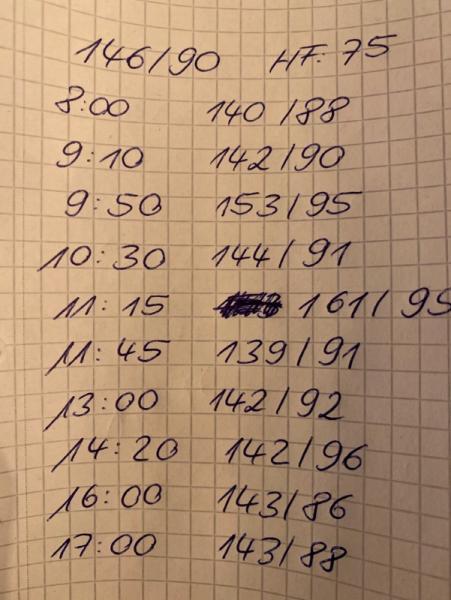 146/90 HF: 75
8:00 140/88
9:10 142/90
9:50 153/95
10:30 144/91
11:15 161/95
11:45 139/91
13:00 142/92
14:20 142/96
16:00 143/86
17:00 143/88